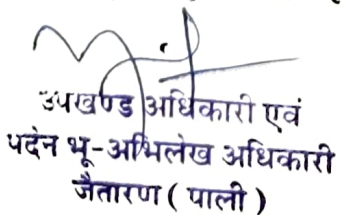 उपखण्ड अधिकारी एवं
पदेन भू-अभिलेख अधिकारी
जैतारण ( पाली )